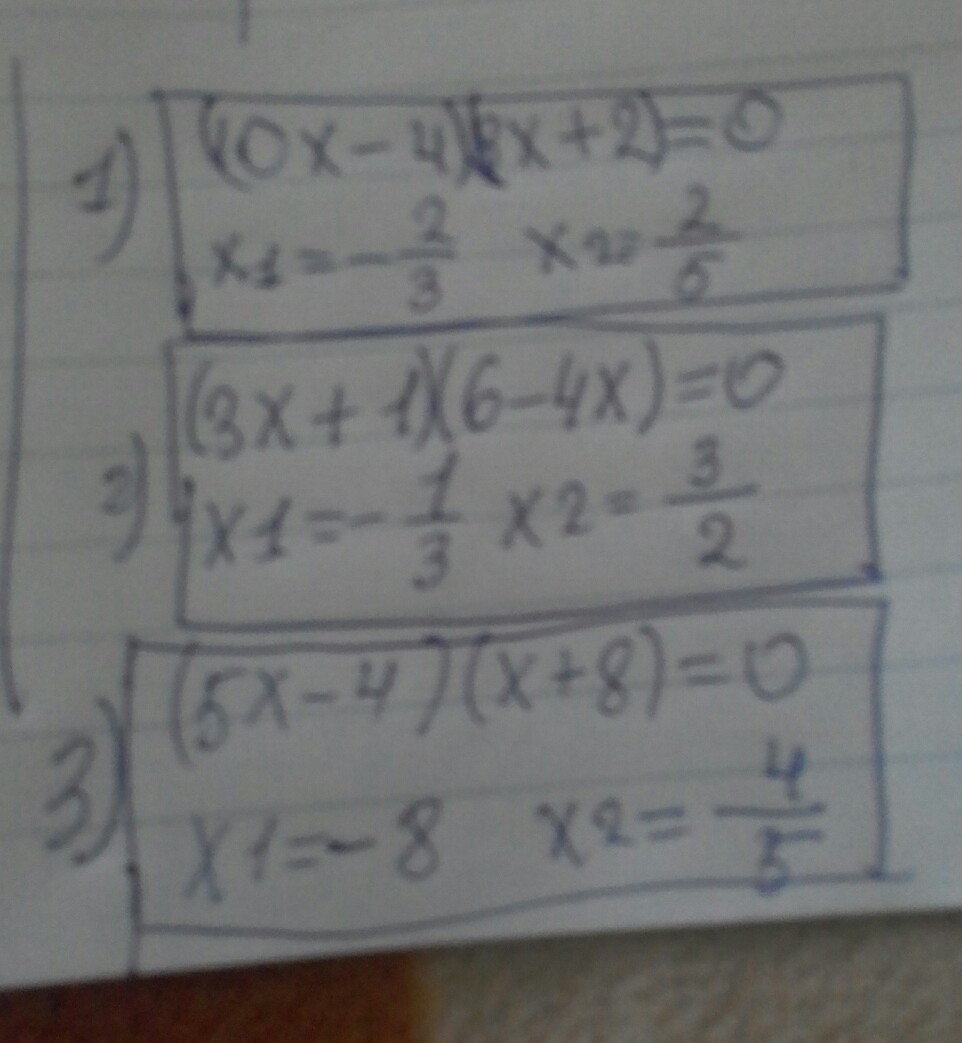 1) (10x-4)(3x+2)=0
x1=-2/3 x2=2/5
2) (3x+1)(6-4x)=0
x1=-1/3 x2=3/2
3) (5x-4)(x+8)=0
x1=-8 x2=4/5